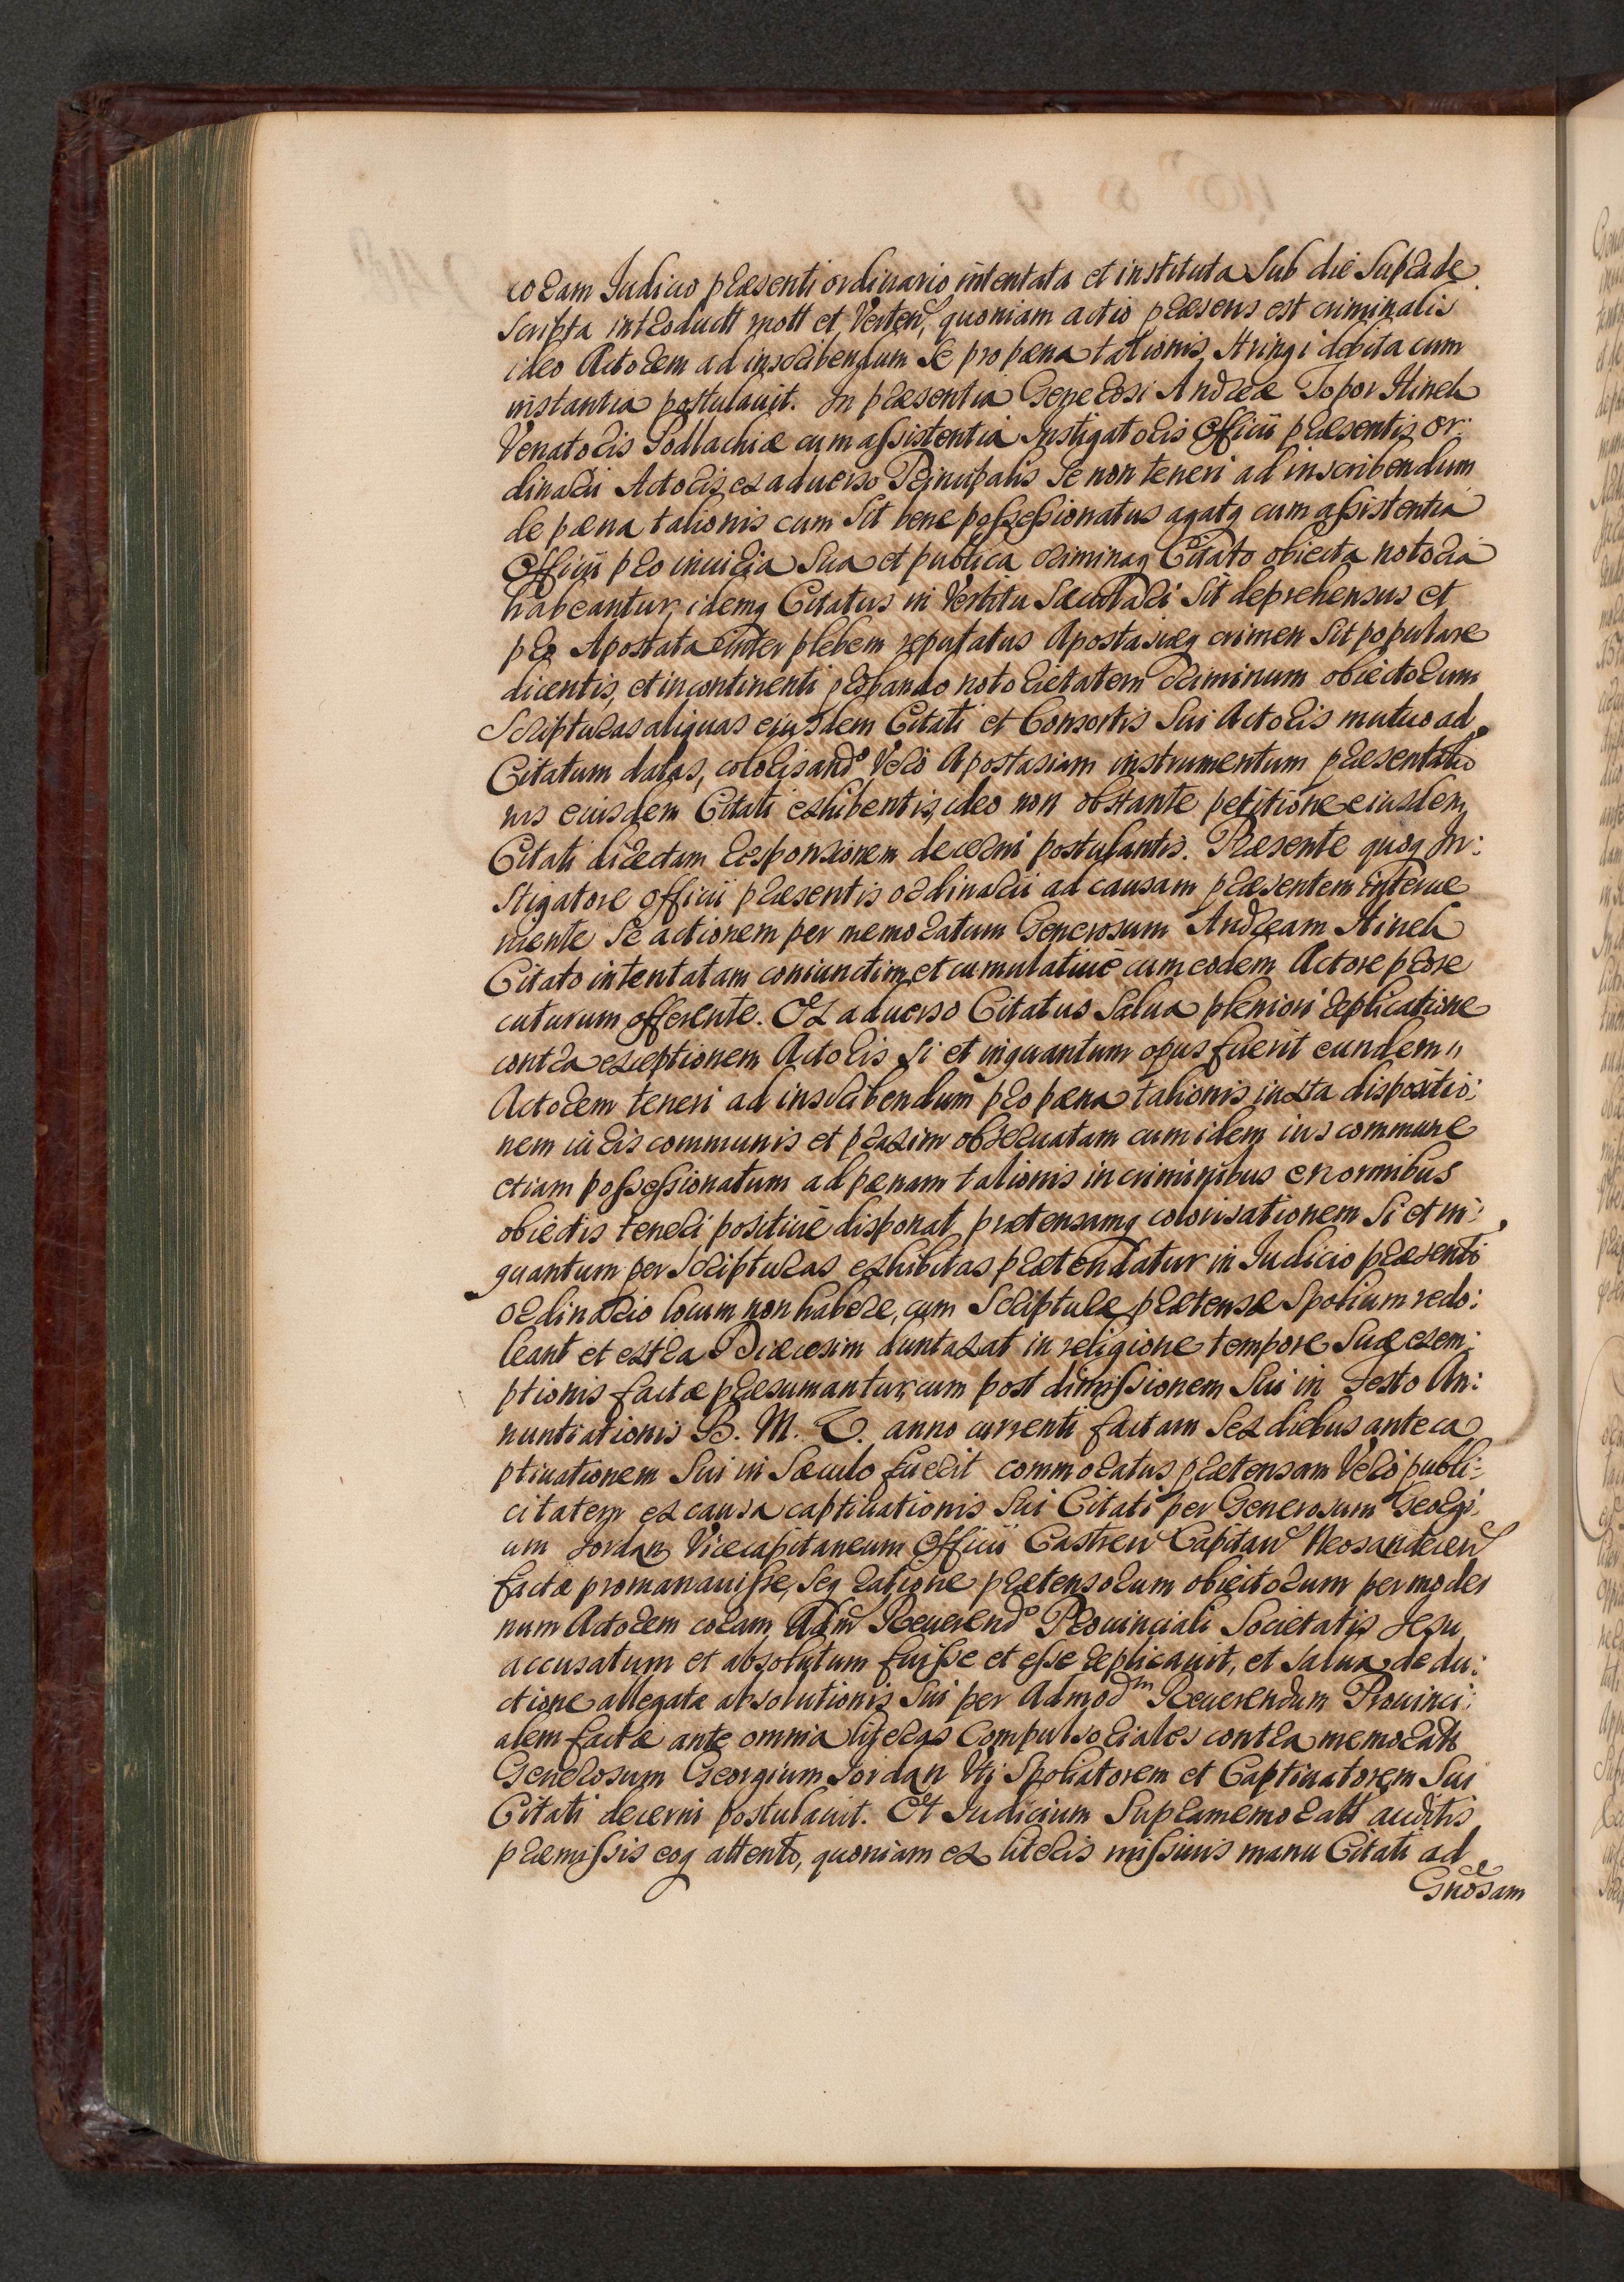 coram Iudicio præsenti ordinario intentata et instituta Sub die Suprade
Scripta introductt mott et Verten, quoniam actio præsens est criminalis
ideo Actorem ad inscribendum Se pro pæna talionis Stringi debita cum
instantia postulauit. In præsentia Generosi Andreæ Topor Hineh
Venatoris Podlachiæ cum assistentia Instigatoris Officii præsentis or:
dinarii Actoris ex aduerso Principalis Se non teneri ad inscribendum
de pæna talionis cum Sit bene possessionatus agatq cum assistentia
Officii pro iniuria Sua et publica criminaq Citato obiecta notoria
habeantur, idemq Citatus in Vestitu Sæculari Sit deprehensus et
pro Apostata inter plebem reputatus Apostasiæq crimen Sit populare
dicentis, et incontinenti probando notorietatem criminum obiectorum
Scripturas aliquas eiusdem Citati et Consortis Sui Actoris mutuo ad
Citatum datas, colorisando Vero Apostasiam instrumentum præsentatio
nis eiusdem Citati exhibentis, ideo non obstante petitione eiusdem
Citati directam responsionem decerni postulantis. Præsente quoq In:
stigatore Officii præsentis ordinarii ad causam præsentem interue
niente Se actionem per memoratum Generosum Andream Hineh
Citato intentatam coniunctim et cumulatiue cum eodem Actore prose
cuturum offerente. Ex aduerso Citatus Salua pleniori replicatione
contra exceptionem Actoris Si et inquantum opus fuerit eundem
Actorem teneri ad inscribendum pro pæna talionis iuxta dispositio:
nem iuris communis et praxim obseruatam cum idem ius commune
etiam possessionatum ad pænam talionis in criminibus enormibus
obiectis teneri positiue disponat, prætensamq colorisationem Si et in:
quantum per Scripturas exhibitas prætendatur in Iudicio præsenti
ordinario locum non habere, cum Scripturæ prætensæ Spolium redo:
leant et extra Diæcesim duntaxat in religione tempore Suæ exem:
ptionis factæ præsumantur, cum post dimissionem Sui in Festo An:
nuntiationis B. M. V. anno currenti factam Sex diebus ante ca
ptiuationem Sui in Sæculo fuerit commoratus prætensam Vero publi:
citatem ex causa captiuationis Sui Citati per Generosum Georgi:
um Jordan Vicecapitaneum Officii Castren Capitan Neosandecen
factæ promanauisse, Seq ratione prætensorum obiectorum per moder
num Actorem coram Adm Reuerendo Prouinciali Societatis Jesu
accusatum et absolutum fuisse et esse replicauit, et Salua dedu:
ctione allegatæ absolutionis Sui per Admodm Reuerendum Prouinci:
alem factæ ante omnia literas Compulsoriales contra memoratt
Generosum Georgium Jordan Uti Spoliatorem et Captiuatorem Sui
Citati decerni postulauit. Et Iudicium Supramemoratt auditis
præmissis eoq attento, quoniam ex literis missiuis manu Citati ad
Gnosam